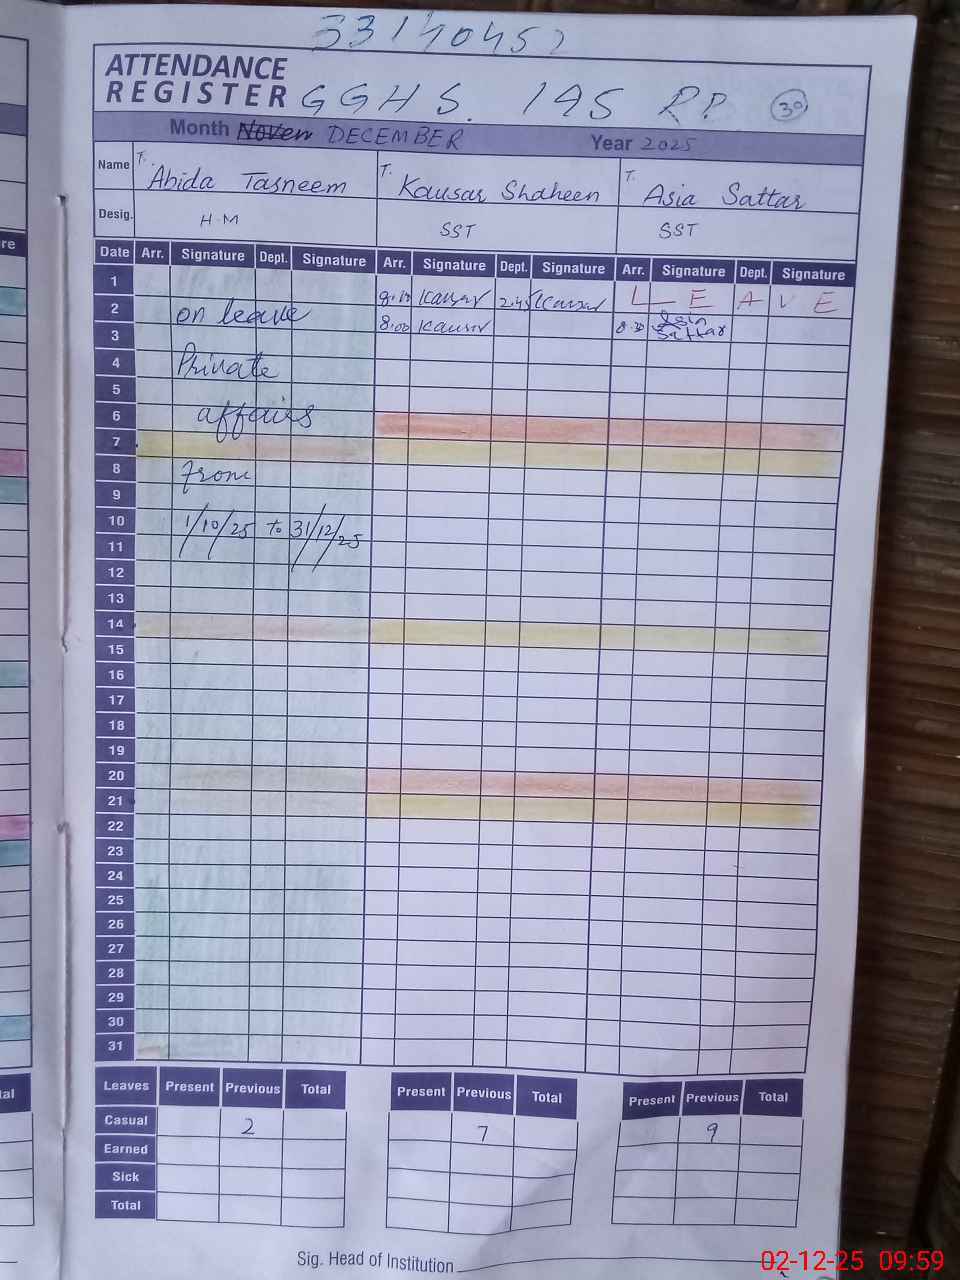 33140452
ATTENDANCE
REGISTER GGHS. 195 RP. 30
Month Noven DECEMBER Year 2025
Name T. Abida Tasneem T. Kausar Shaheen T. Asia Sattar
Desig. H.M SST SST
Date Arr. Signature Dept. Signature Arr. Signature Dept. Signature Arr. Signature Dept. Signature
1 8:10 Kausar 2:45 Kausar L E A V E
2 on leave 8:00 Kausar 8:30 Asia Sattar
3
4 Private
5
6 affairs
7
8 From
9
10 1/10/25 to 31/12/25
11
12
13
14
15
16
17
18
19
20
21
22
23
24
25
26
27
28
29
30
31
Leaves Present Previous Total Present Previous Total Present Previous Total
Casual 2 7 9
Earned
Sick
Total
Sig. Head of Institution
02-12-25 09:59